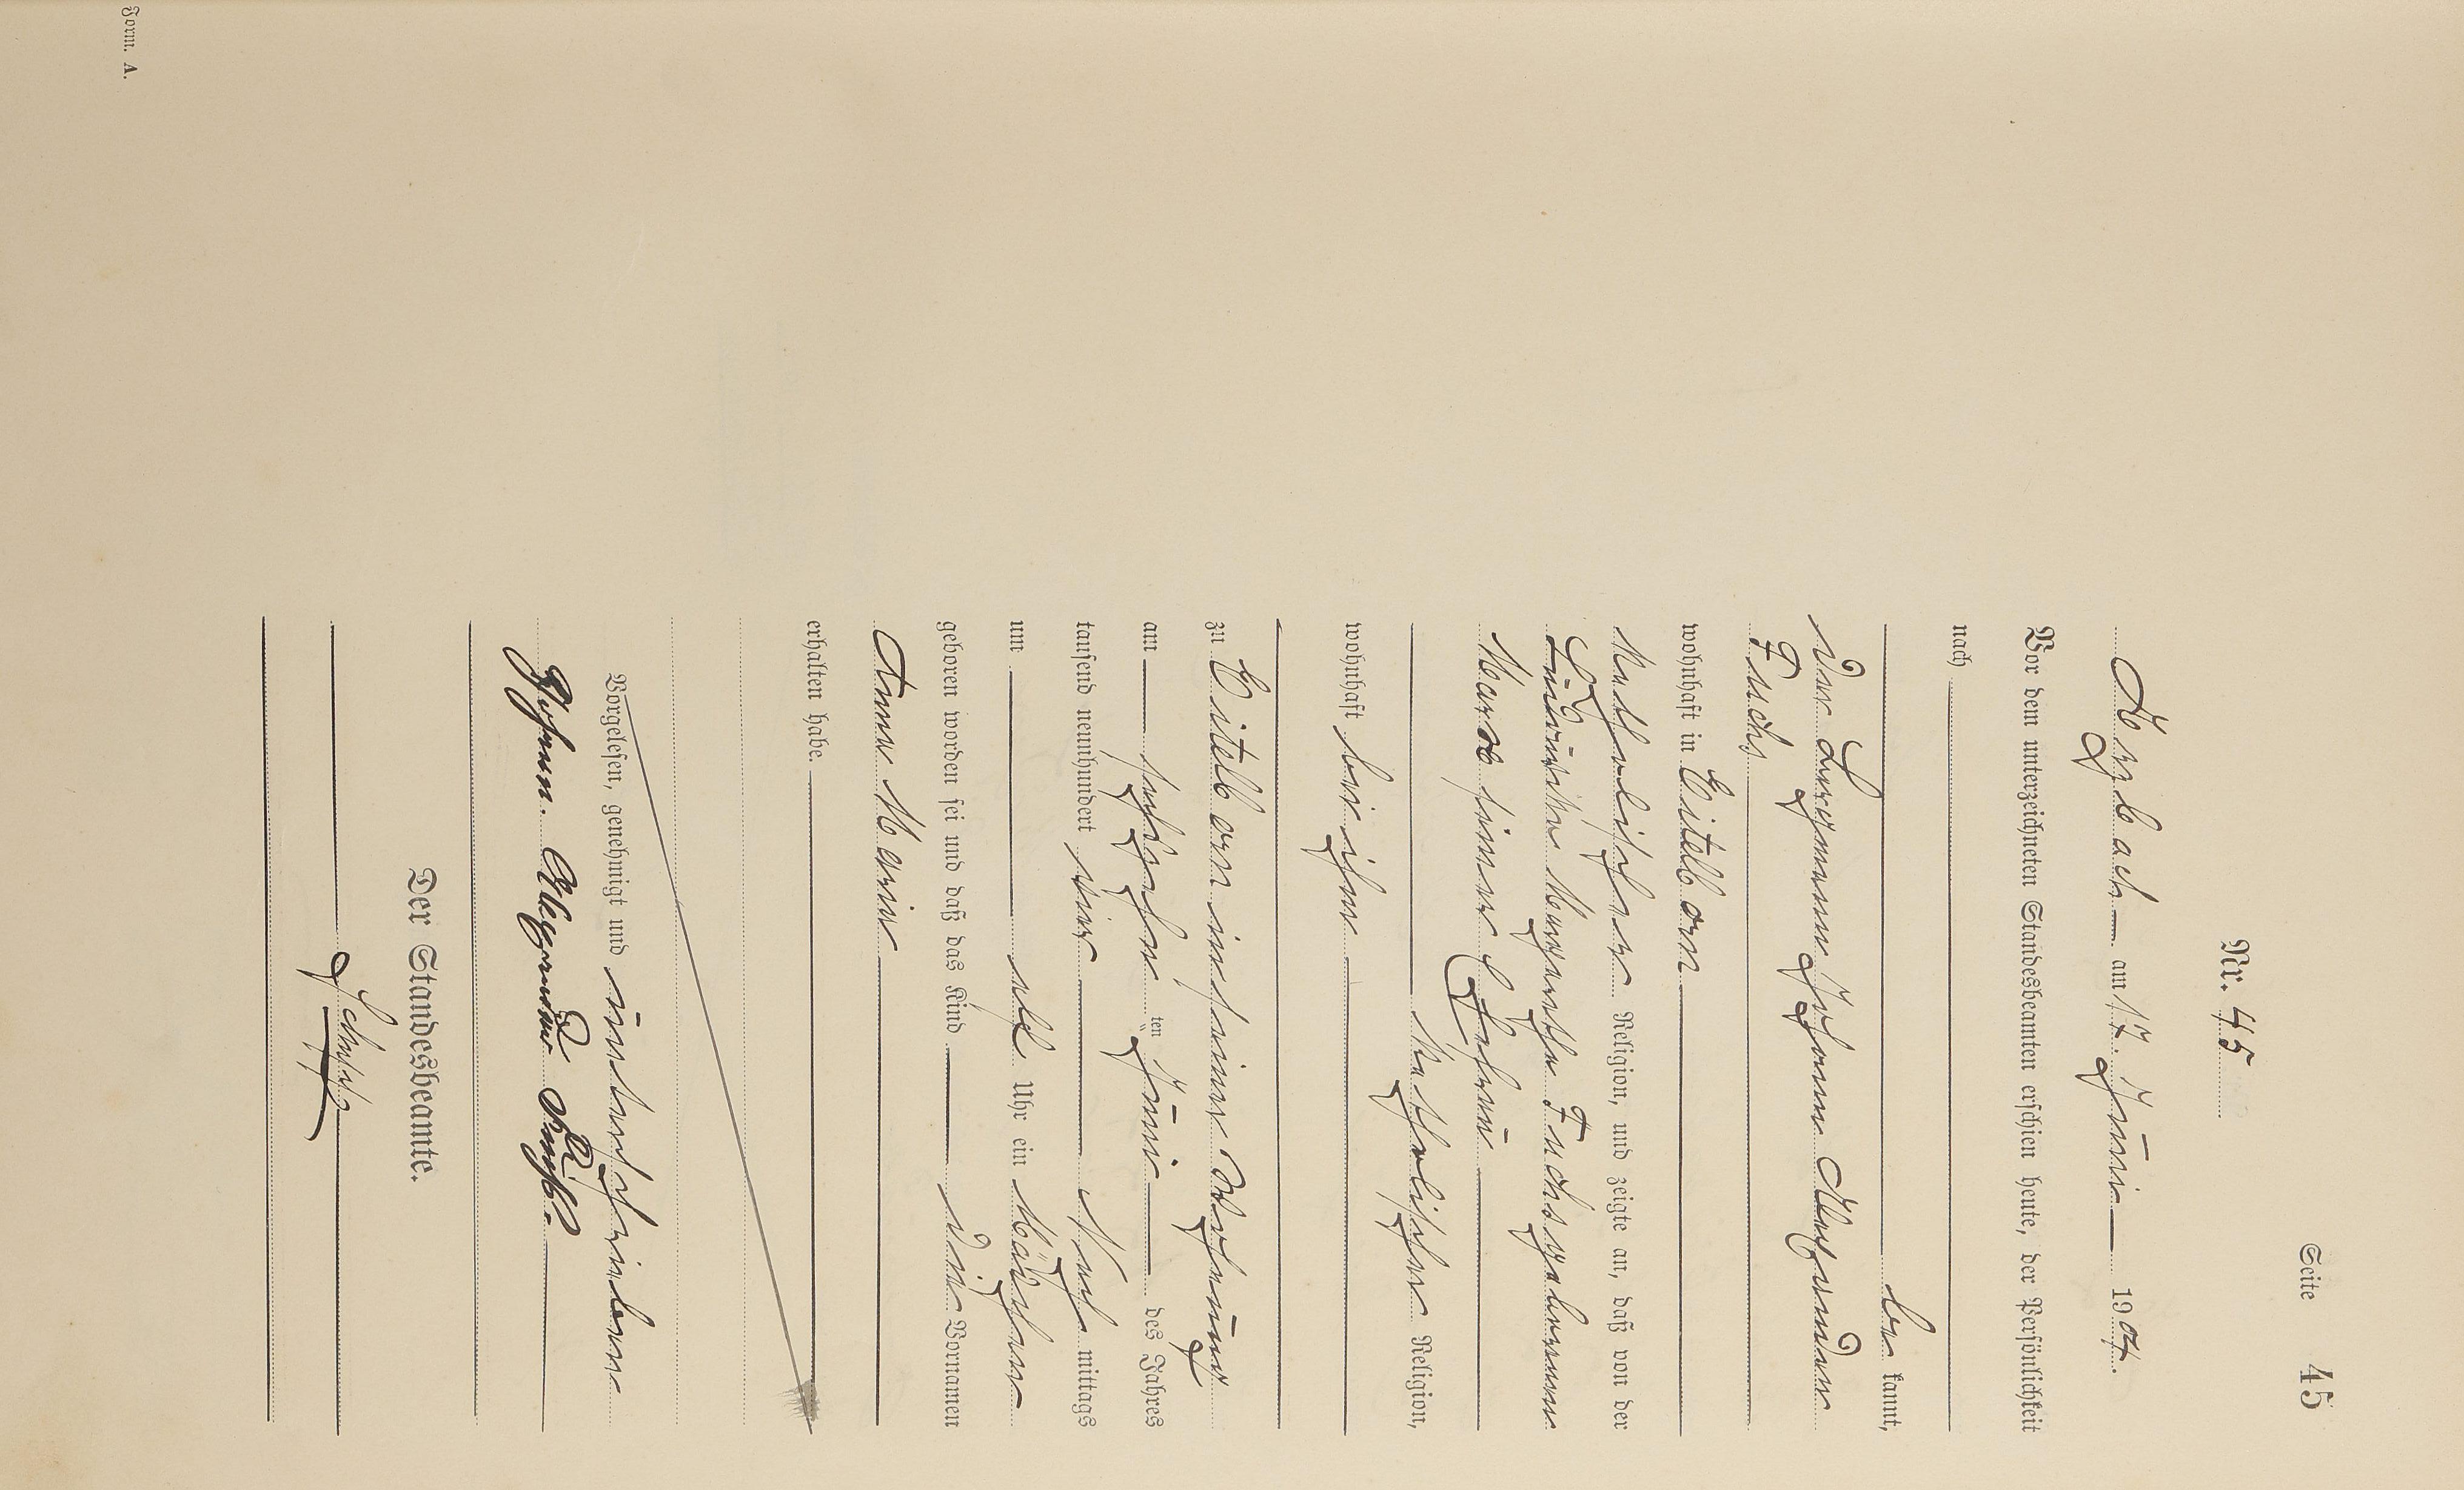 Seite 45
Nr. 45
Arzbach am 17. Juni 1904.
Vor dem unterzeichneten Standesbeamten erschien heute, der Persönlichkeit
nach
be kannt,
der Bergmann Johann Alexander
Fuchs
wohnhaft in Eitelborn
katholischer Religion, und zeigte an, daß von der
Margaretha Fuchs geborenen
Marx seiner Ehefrau
katholischer Religion,
wohnhaft bei ihm
zu Eitelborn in seiner Wohnung
am sechszehn ten Juni des Jahres
tausend neunhundert vier Nach mittags
um acht Uhr ein Mädchen
geboren worden sei und daß das Kind die Vornamen
Anna Maria
erhalten habe.
Vorgelesen, genehmigt und unterschrieben
Johann Alexander Fuchs.
Der Standesbeamte.
Form. A.